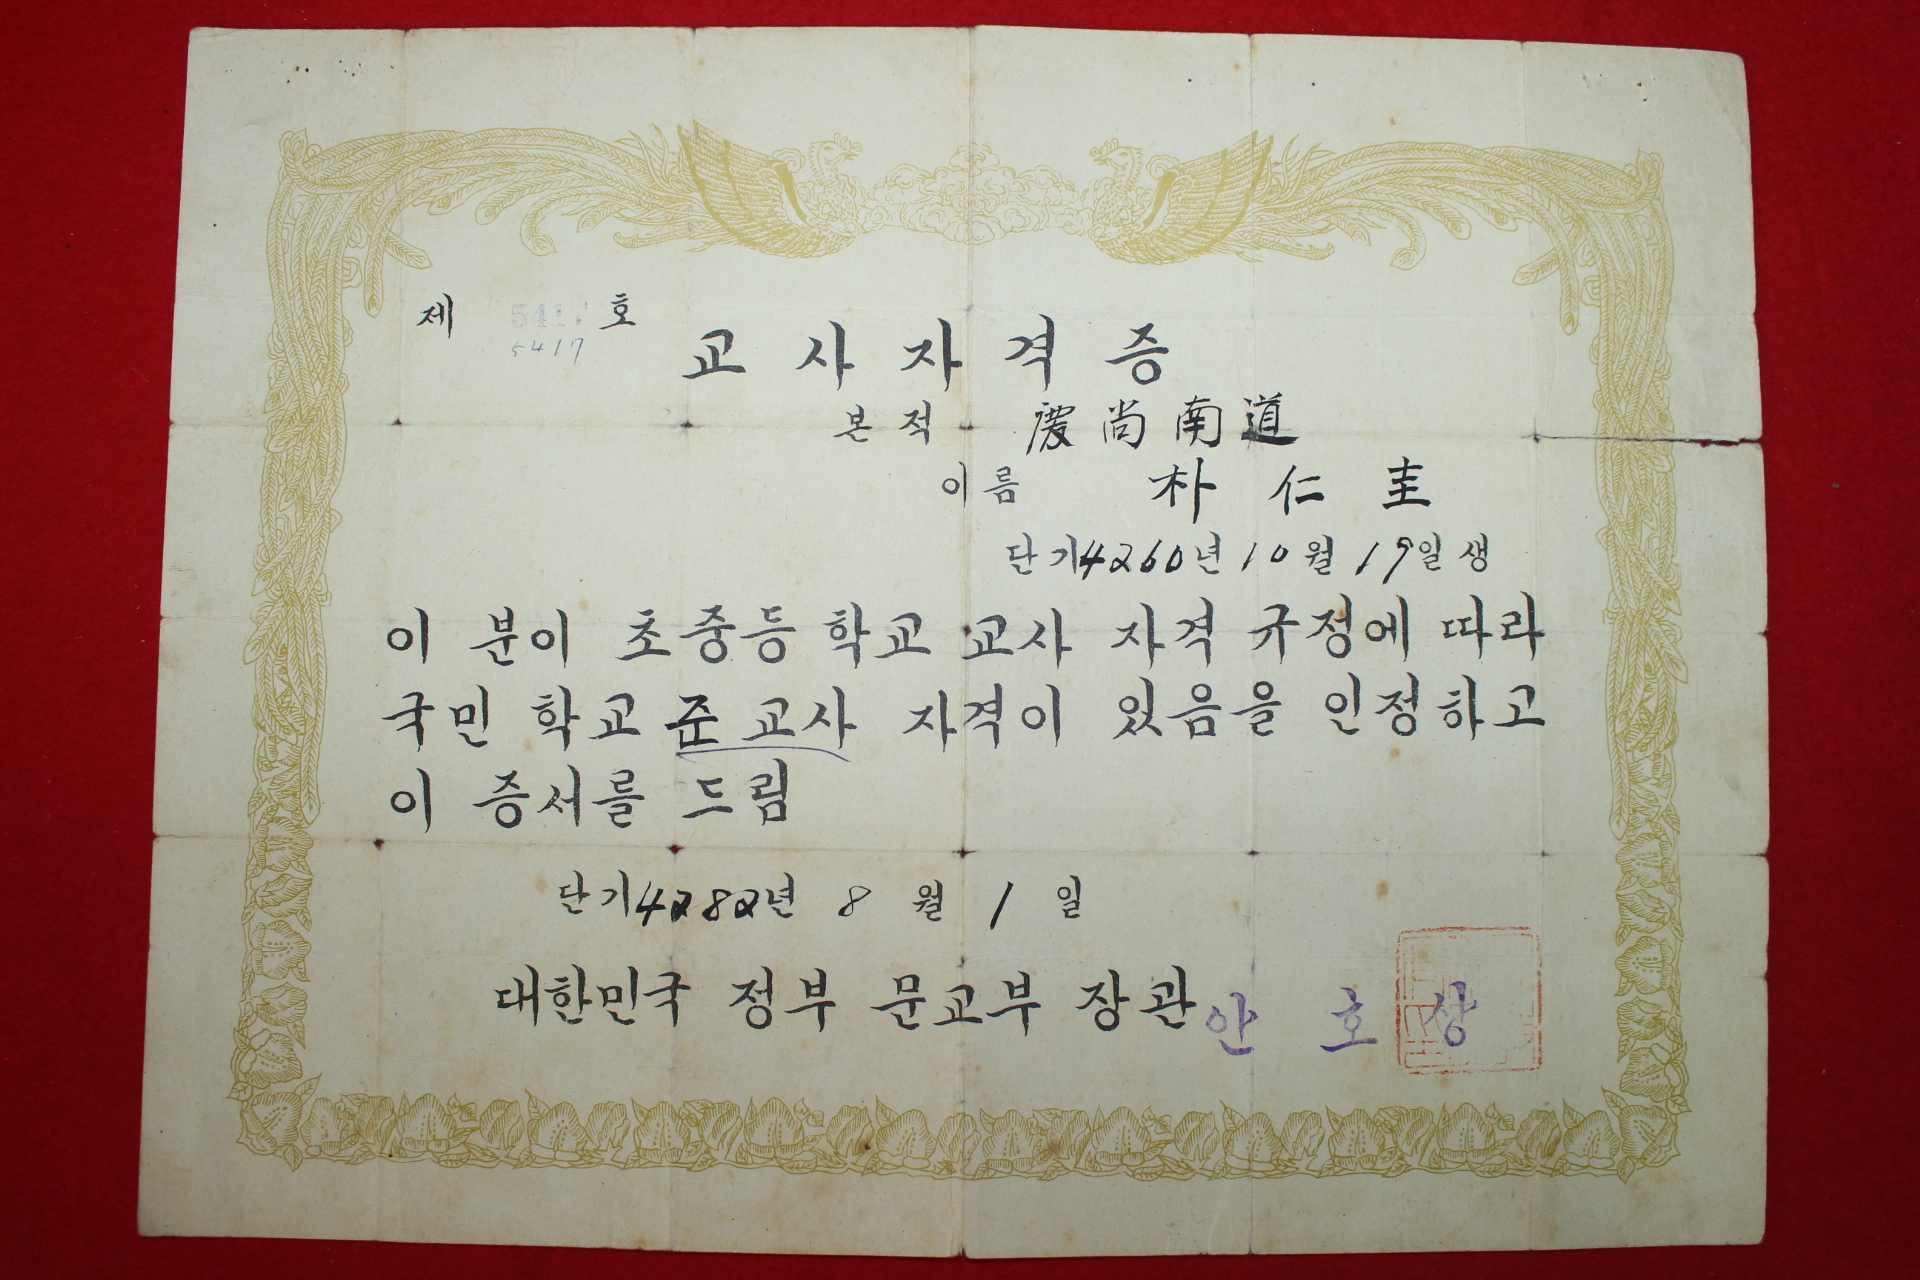 제 5417 호
5417
교사자격증
본적 慶尙南道
이름 朴仁圭
단기4260년 10월 19일생
이 분이 초중등 학교 교사 자격 규정에 따라
국민 학교 준교사 자격이 있음을 인정하고
이 증서를 드림
단기4282년 8월 1일
대한민국 정부 문교부 장관 안호상